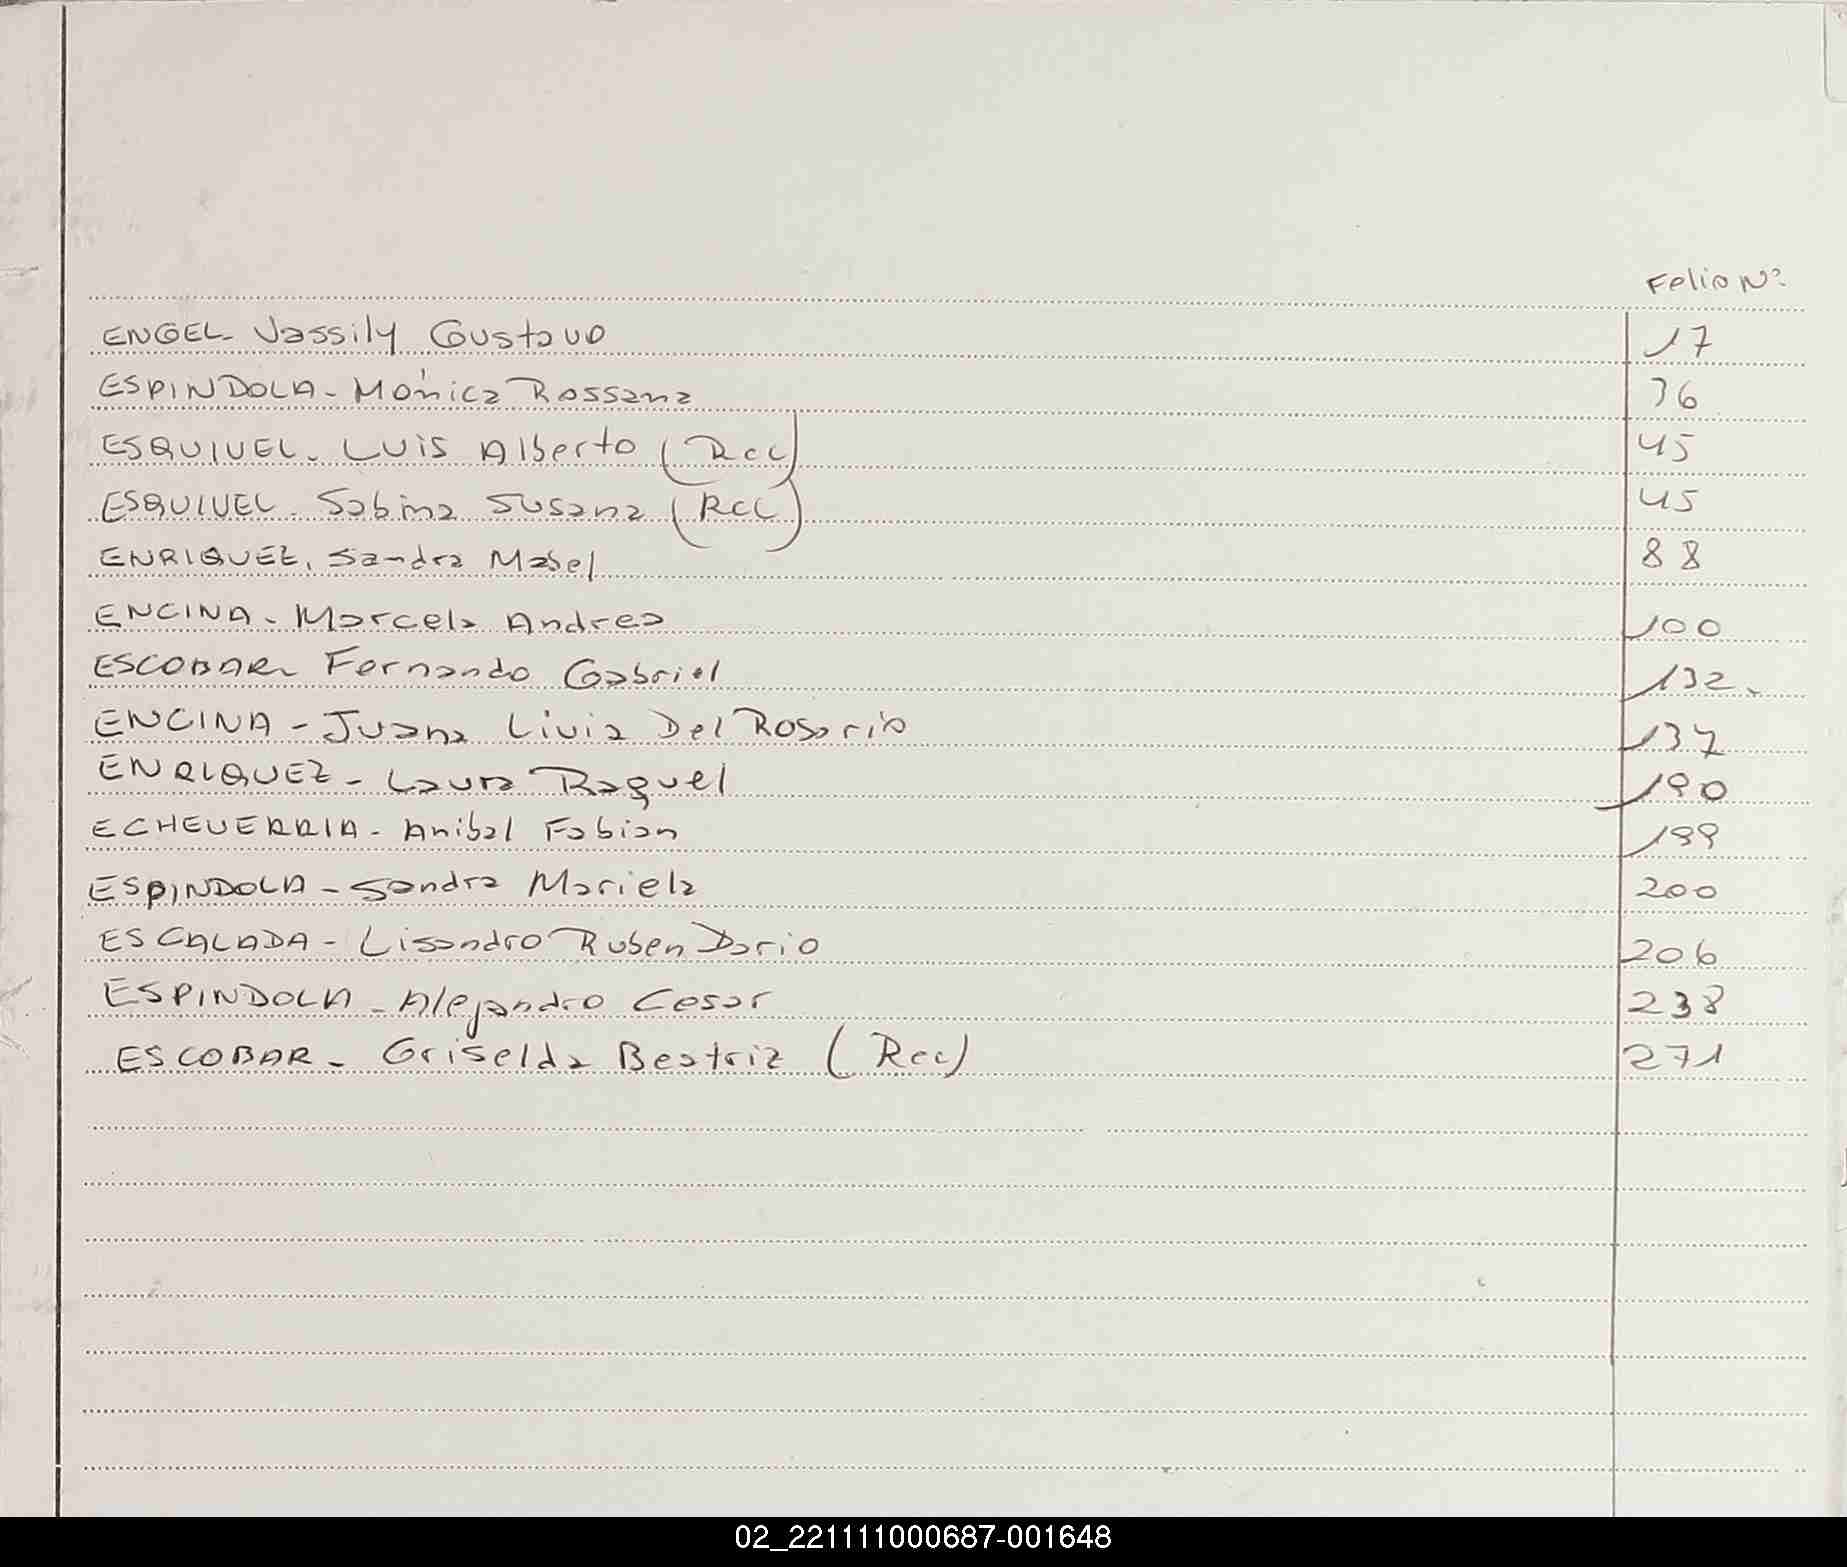 Folio Nº
ENGEL- Vassily Gustavo 17
ESPINDOLA- Mónica Rossana 36
ESQUIVEL- Luis Alberto (Rcc) 45
ESQUIVEL- Sabina Susana (Rcc) 45
ENRIQUEZ, Sandra Mabel 88
ENCINA- Marcela Andrea 100
ESCOBAR- Fernando Gabriel 132.
ENCINA - Juana Livia Del Rosario 137
ENRIQUEZ - Laura Raquel 190
ECHEVERRIA- Anibal Fabian 199
ESPINDOLA - Sandra Mariela 200
ESCALADA - Lisandro Ruben Dario 206
ESPINDOLA - Alejandro Cesar 238
ESCOBAR - Griselda Beatriz (Rcc) 271
02_221111000687-001648